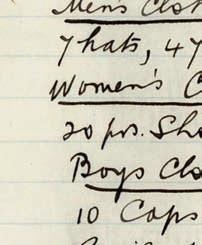 Men's Clot
7 hats, 47
Women's C
20 prs. Sho
Boys Clo
10 Caps